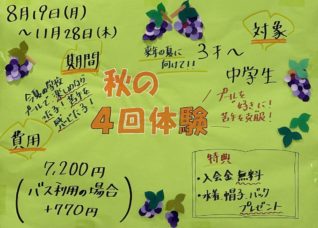 8月19日(月)
〜11月28日(木)
期間
来年の夏に
向けて!!
対象
3才〜
中学生
秋の
4回体験
今夏の学校
プールで楽しめなかった
プールを
好きに!
苦手を克服!
費用
7,200円
(バス利用の場合
+770円)
特典
・入会金 無料
・水着、帽子、バック
プレゼント